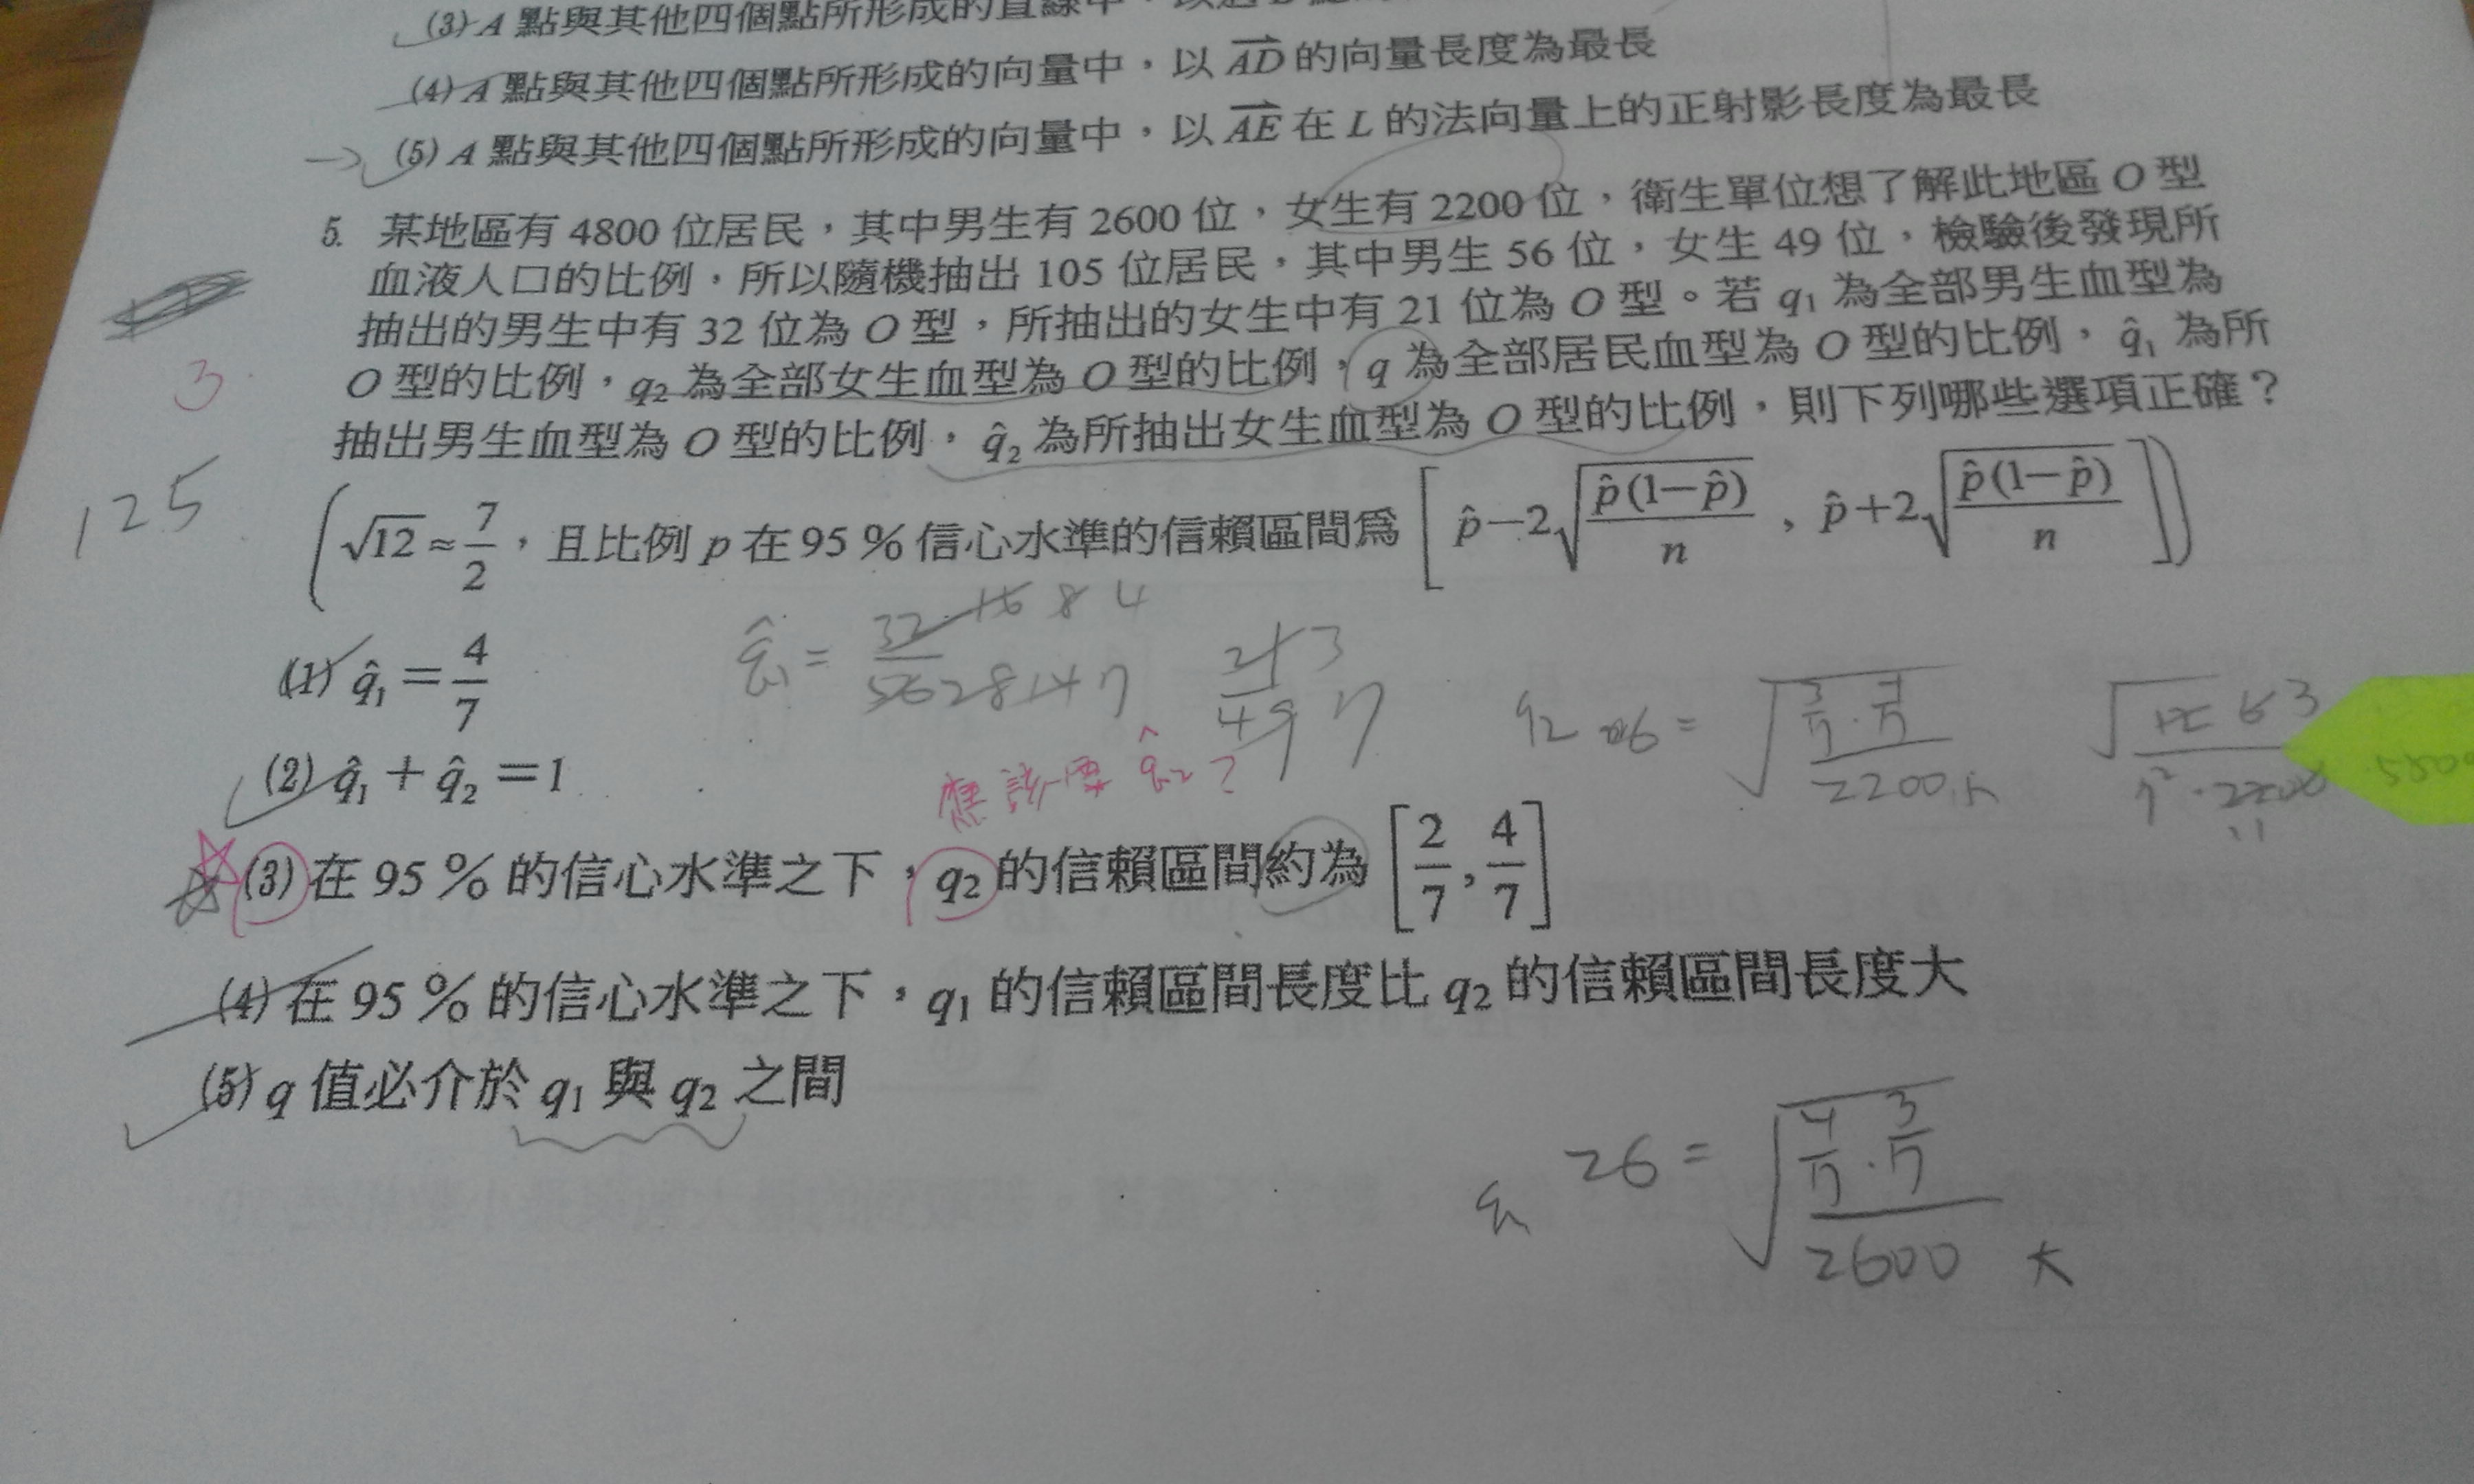 (3) A 點與其他四個點所形成的直線中，以過
(4) A 點與其他四個點所形成的向量中，以 AD 的向量長度為最長
(5) A 點與其他四個點所形成的向量中，以 AE 在 L 的法向量上的正射影長度為最長
5. 某地區有 4800 位居民，其中男生有 2600 位，女生有 2200 位，衛生單位想了解此地區 O 型
血液人口的比例，所以隨機抽出 105 位居民，其中男生 56 位，女生 49 位，檢驗後發現所
抽出的男生中有 32 位為 O 型，所抽出的女生中有 21 位為 O 型。若 q₁ 為全部男生血型為
O 型的比例，q₂ 為全部女生血型為 O 型的比例，q 為全部居民血型為 O 型的比例，q̂₁ 為所
抽出男生血型為 O 型的比例，q̂₂ 為所抽出女生血型為 O 型的比例，則下列哪些選項正確？
3
125
(√12≈7/2，且比例 p 在 95％信心水準的信賴區間為 [p̂−2√(p̂(1−p̂)/n)，p̂+2√(p̂(1−p̂)/n)])
(1) q̂₁＝4/7
q̂₁ = 32 16 8 4
56 28 14 7
21 3
49 7
q₂ = √(3/7·4/7 / 2200)
(2) q̂₁＋q̂₂＝1
應該要 q̂₂？
(3) 在 95％的信心水準之下，q₂ 的信賴區間約為 [2/7, 4/7]
(4) 在 95％的信心水準之下，q₁ 的信賴區間長度比 q₂ 的信賴區間長度大
(5) q 值必介於 q₁ 與 q₂ 之間
q₁ 26 = √(4/7·3/7 / 2600)